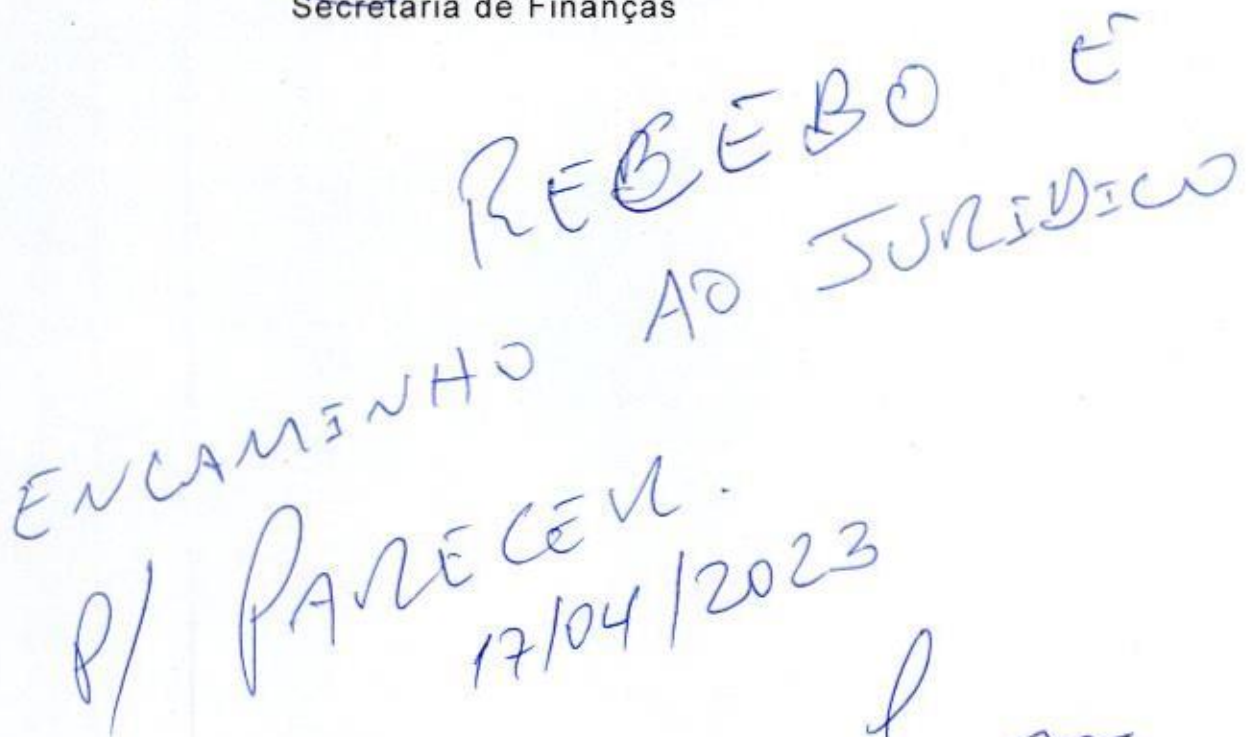 Secretaria de Finanças
REBEBO E
ENCAMINHO AO JURIDICO
P/ PARECER.
17/04/2023